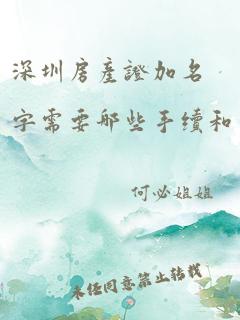 深圳房產證加名
字需要哪些手續和
何必姐姐
未经同意禁止转载